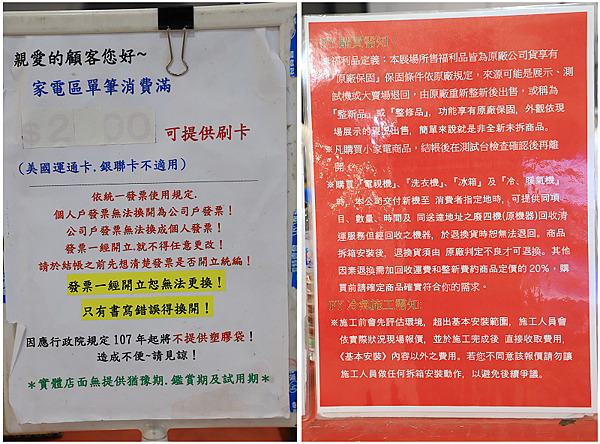 親愛的顧客您好~
家電區單筆消費滿
可提供刷卡
(美國運通卡.銀聯卡不適用)
依統一發票使用規定.
個人戶發票無法換開為公司戶發票!
公司戶發票無法換成個人發票!
發票一經開立.就不得任意更改!
請於結帳之前先想清楚發票是否開立統編!
發票一經開立恕無法更換!
只有書寫錯誤得換開!
因應行政院規定107年起將不提供塑膠袋!
造成不便~請見諒!
*實體店面無提供猶豫期.鑑賞期及試用期*
※福利品定義:本展場所售福利品皆為原廠公司貨享有
原廠保固』保固條件依原廠規定,來源可能是展示、測
試機或大賣場退回,由原廠重新整新後出售,或稱為
「整新品」或『整修品』,功能享有原廠保固,外觀依現
場展示的狀況出售,簡單來說就是非全新未拆商品。
※凡購買小家電商品,結帳後在測試台檢查確認後再離
開。
※購買「電視機」、『洗衣機」、『冰箱』及『冷、暖氣機』
時,本公司交付新機至 消費者指定地時,可提供同項
目、數量、時間及 同送達地址之廢四機(原機器)回收清
運服務但經回收之機器,於退換貨時恕無法退回。商品
拆箱安裝後,退換貨須由 原廠判定不良才可退換。其他
因素退換需加回收運費和整新費約商品定價的20%,購
買前請確定商品確實符合你的需求。
冷氣施工需知:
※施工前會先評估環境,超出基本安裝範圍,施工人員會
依實際狀況現場報價,並於施工完成後 直接收取費用,
《基本安裝》內容以外之費用。若您不同意該報價請勿讓
施工人員做任何拆箱安裝動作,以避免後續爭議。